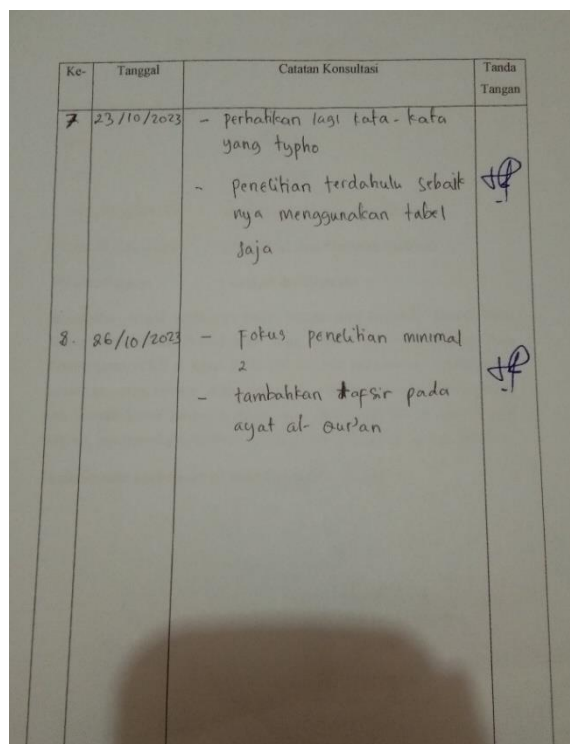 Ke- Tanggal Catatan Konsultasi Tanda Tangan
7 23/10/2023 - perhatikan lagi kata-kata
yang typho
- penelitian terdahulu sebaik
nya menggunakan tabel
saja
8. 26/10/2023 - Fokus penelitian minimal
2
- tambahkan tafsir pada
ayat al-Qur'an